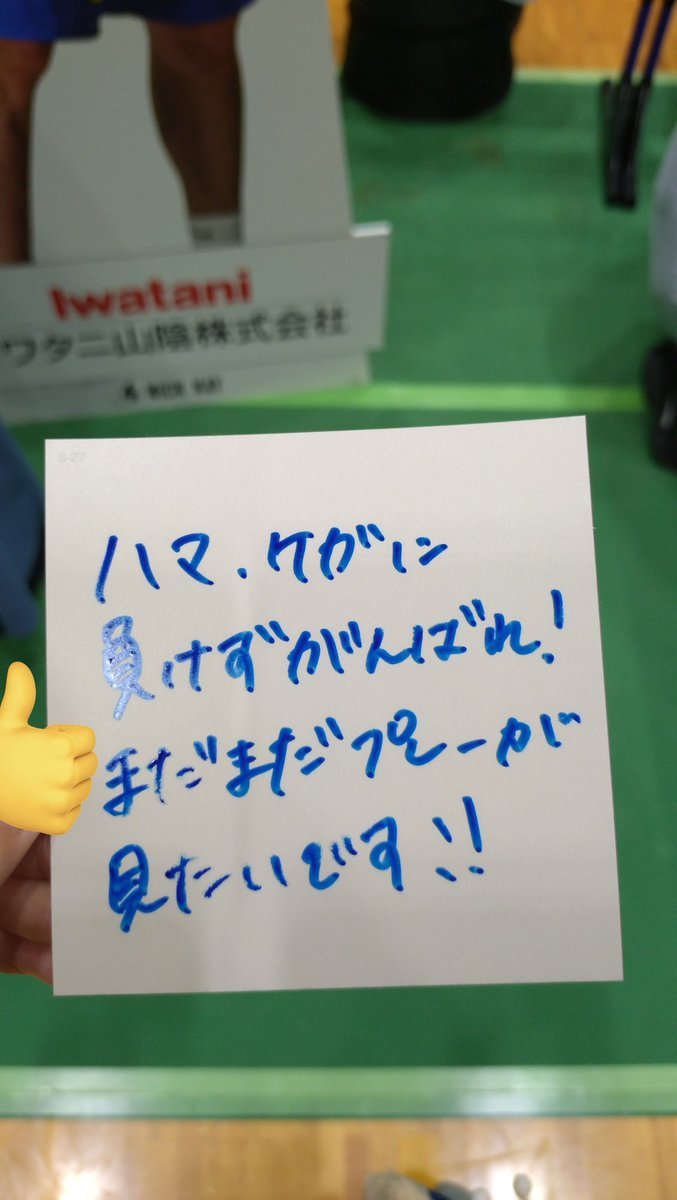 Iwatani
ワタニ山陰株式会社
S-27
ハマ、ケガに
負けずがんばれ!
まだまだプレーが
見たいです!!